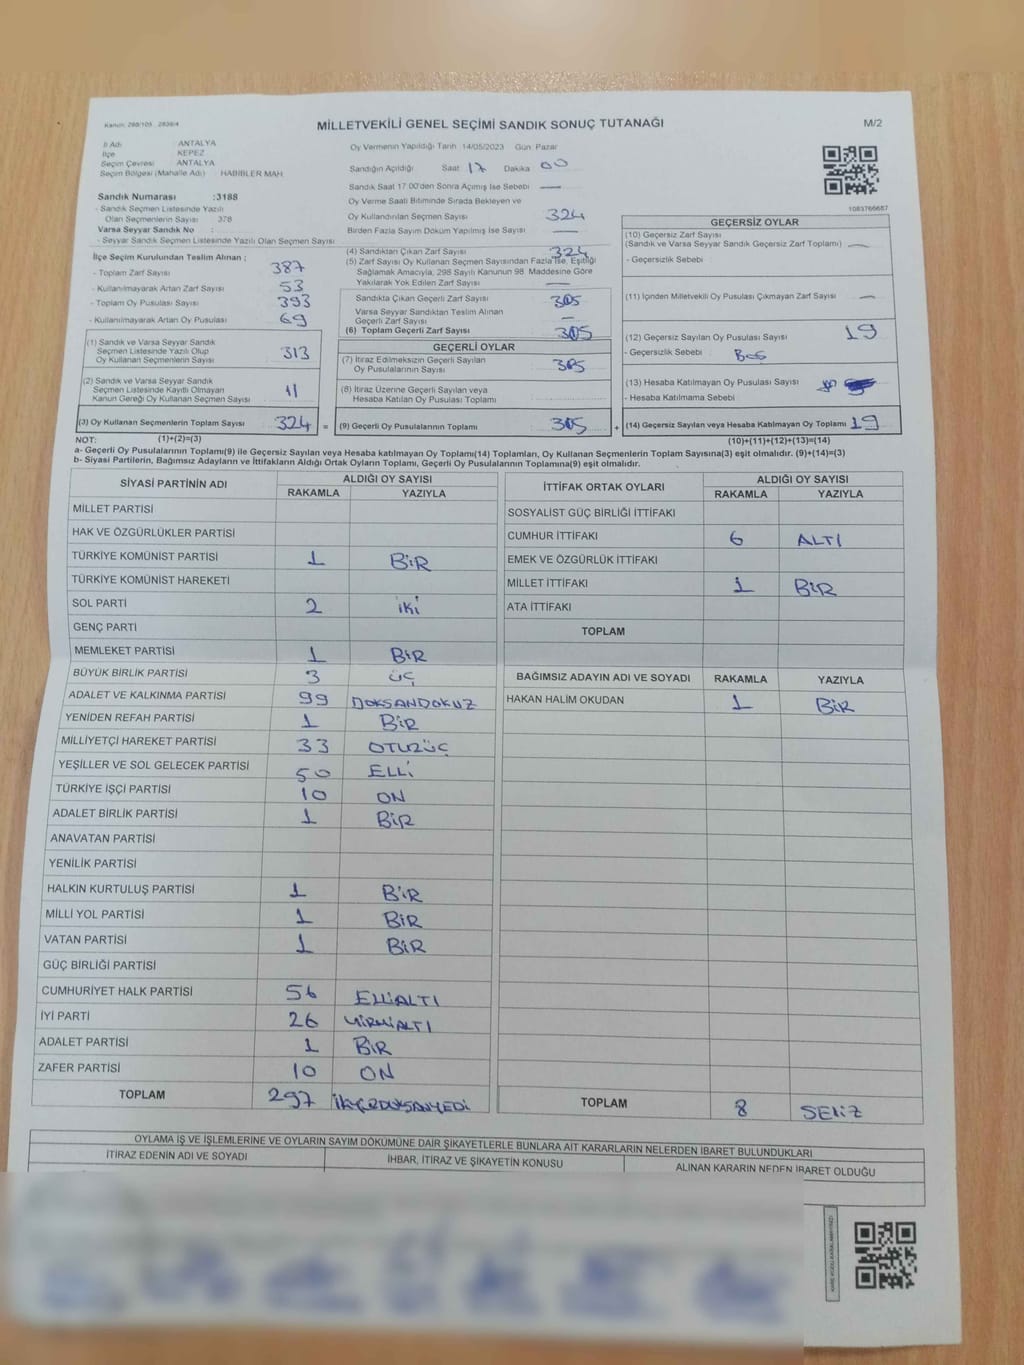 Kanun: 298/105 , 2839/4
MİLLETVEKİLİ GENEL SEÇİMİ SANDIK SONUÇ TUTANAĞI
M/2
İl Adı : ANTALYA
İlçe : KEPEZ
Seçim Çevresi : ANTALYA
Seçim Bölgesi (Mahalle Adı) : HABİBLER MAH.
Sandık Numarası :3188
- Sandık Seçmen Listesinde Yazılı
Olan Seçmenlerin Sayısı : 378
Varsa Seyyar Sandık No :
- Seyyar Sandık Seçmen Listesinde Yazılı Olan Seçmen Sayısı :
İlçe Seçim Kurulundan Teslim Alınan ;
- Toplam Zarf Sayısı 387
- Kullanılmayarak Artan Zarf Sayısı 53
- Toplam Oy Pusulası Sayısı 393
- Kullanılmayarak Artan Oy Pusulası 69
(1) Sandık ve Varsa Seyyar Sandık
Seçmen Listesinde Yazılı Olup
Oy Kullanan Seçmenlerin Sayısı 313
(2) Sandık ve Varsa Seyyar Sandık
Seçmen Listesinde Kayıtlı Olmayan
Kanun Gereği Oy Kullanan Seçmen Sayısı 11
(3) Oy Kullanan Seçmenlerin Toplam Sayısı 324 =
Oy Vermenin Yapıldığı Tarih 14/05/2023 Gün Pazar
Sandığın Açıldığı Saat 17 Dakika 00
Sandık Saat 17.00'den Sonra Açımış İse Sebebi —
Oy Verme Saati Bitiminde Sırada Bekleyen ve
Oy Kullandırılan Seçmen Sayısı 324
Birden Fazla Sayım Döküm Yapılmış İse Sayısı —
(4) Sandıktan Çıkan Zarf Sayısı 324
(5) Zarf Sayısı Oy Kullanan Seçmen Sayısından Fazla İse, Eşitliği
Sağlamak Amacıyla, 298 Sayılı Kanunun 98. Maddesine Göre
Yakılarak Yok Edilen Zarf Sayısı —
Sandıkta Çıkan Geçerli Zarf Sayısı 305
Varsa Seyyar Sandıktan Teslim Alınan
Geçerli Zarf Sayısı —
(6) Toplam Geçerli Zarf Sayısı 305
GEÇERLİ OYLAR
(7) İtiraz Edilmeksizin Geçerli Sayılan
Oy Pusulalarının Sayısı 305
(8) İtiraz Üzerine Geçerli Sayılan veya
Hesaba Katılan Oy Pusulası Toplamı
(9) Geçerli Oy Pusulalarının Toplamı 305 +
1083766687
GEÇERSİZ OYLAR
(10) Geçersiz Zarf Sayısı
(Sandık ve Varsa Seyyar Sandık Geçersiz Zarf Toplamı) —
- Geçersizlik Sebebi :
(11) İçinden Milletvekili Oy Pusulası Çıkmayan Zarf Sayısı —
(12) Geçersiz Sayılan Oy Pusulası Sayısı 19
- Geçersizlik Sebebi : Boş
(13) Hesaba Katılmayan Oy Pusulası Sayısı
- Hesaba Katılmama Sebebi :
(14) Geçersiz Sayılan veya Hesaba Katılmayan Oy Toplamı 19
NOT: (1)+(2)=(3) (10)+(11)+(12)+(13)=(14)
a- Geçerli Oy Pusulalarının Toplamı(9) ile Geçersiz Sayılan veya Hesaba katılmayan Oy Toplamı(14) Toplamları, Oy Kullanan Seçmenlerin Toplam Sayısına(3) eşit olmalıdır. (9)+(14)=(3)
b- Siyasi Partilerin, Bağımsız Adayların ve İttifakların Aldığı Ortak Oyların Toplamı, Geçerli Oy Pusulalarının Toplamına(9) eşit olmalıdır.
SİYASİ PARTİNİN ADI ALDIĞI OY SAYISI
RAKAMLA YAZIYLA
MİLLET PARTİSİ
HAK VE ÖZGÜRLÜKLER PARTİSİ
TÜRKİYE KOMÜNİST PARTİSİ 1 BİR
TÜRKİYE KOMÜNİST HAREKETİ
SOL PARTİ 2 iki
GENÇ PARTİ
MEMLEKET PARTİSİ 1 BİR
BÜYÜK BİRLİK PARTİSİ 3 ÜÇ
ADALET VE KALKINMA PARTİSİ 99 DOKSANDOKUZ
YENİDEN REFAH PARTİSİ 1 BİR
MİLLİYETÇİ HAREKET PARTİSİ 33 OTUZÜÇ
YEŞİLLER VE SOL GELECEK PARTİSİ 50 ELLİ
TÜRKİYE İŞÇİ PARTİSİ 10 ON
ADALET BİRLİK PARTİSİ 1 BİR
ANAVATAN PARTİSİ
YENİLİK PARTİSİ
HALKIN KURTULUŞ PARTİSİ 1 BİR
MİLLİ YOL PARTİSİ 1 BİR
VATAN PARTİSİ 1 BİR
GÜÇ BİRLİĞİ PARTİSİ
CUMHURİYET HALK PARTİSİ 56 ELLİALTI
İYİ PARTİ 26 YİRMİALTI
ADALET PARTİSİ 1 BİR
ZAFER PARTİSİ 10 ON
TOPLAM 297 İKİYÜZDOKSANYEDİ
İTTİFAK ORTAK OYLARI ALDIĞI OY SAYISI
RAKAMLA YAZIYLA
SOSYALİST GÜÇ BİRLİĞİ İTTİFAKI
CUMHUR İTTİFAKI 6 ALTI
EMEK VE ÖZGÜRLÜK İTTİFAKI
MİLLET İTTİFAKI 1 BİR
ATA İTTİFAKI
TOPLAM
BAĞIMSIZ ADAYIN ADI VE SOYADI RAKAMLA YAZIYLA
HAKAN HALİM OKUDAN 1 BİR
TOPLAM 8 SEKİZ
OYLAMA İŞ VE İŞLEMLERİNE VE OYLARIN SAYIM DÖKÜMÜNE DAİR ŞİKAYETLERLE BUNLARA AİT KARARLARIN NELERDEN İBARET BULUNDUKLARI
İTİRAZ EDENİN ADI VE SOYADI İHBAR, İTİRAZ VE ŞİKAYETİN KONUSU ALINAN KARARIN NEDEN İBARET OLDUĞU